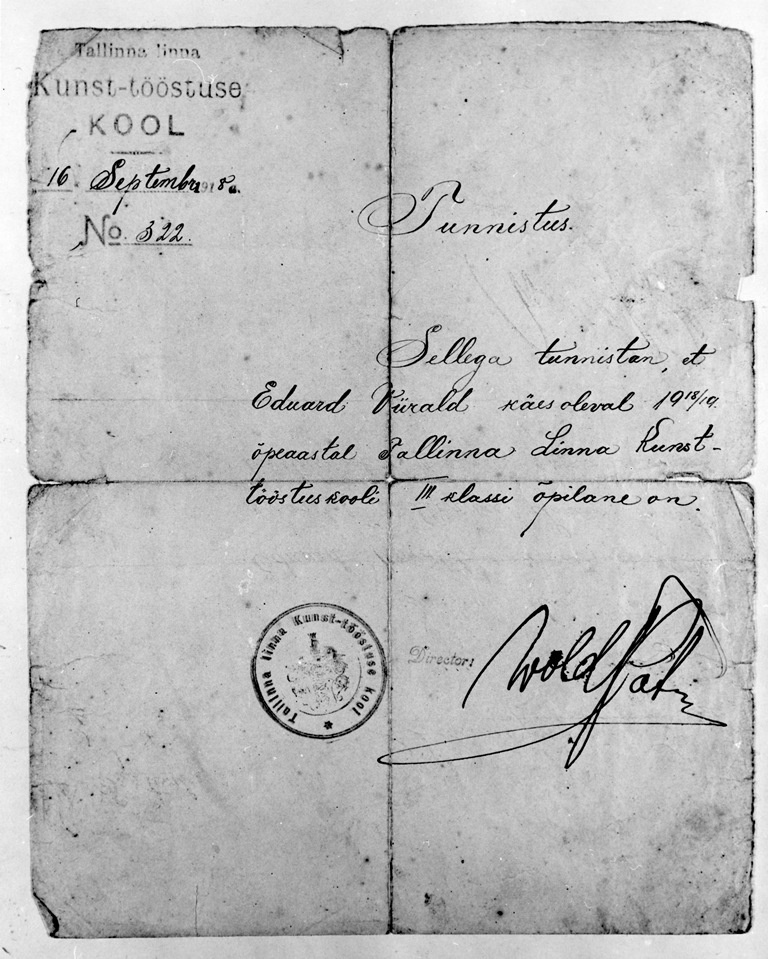 Tallinna linna
Kunst-tööstuse
KOOL
16 Septembr 1918 a.
No. 322.
Tunnistus.
Sellega tunnistan, et
Eduard Viirald käesoleval 1918/19.
õpeaastal Tallinna Linna Kunst-
tööstuskooli III klassi õpilane on.
Tallinna linna Kunst-tööstuse kool
Director: